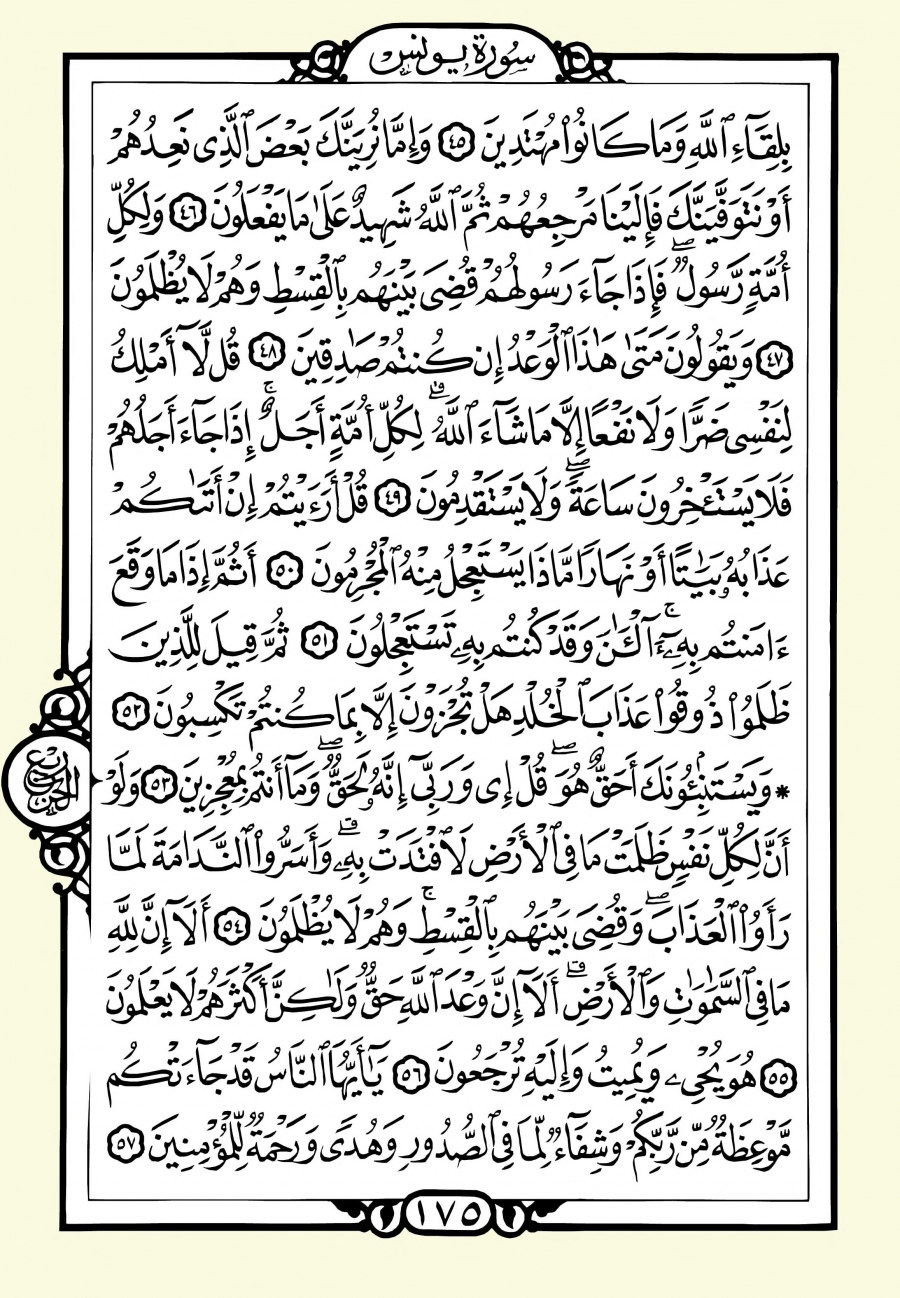 سُورَةُ يُونُسَ
بِلِقَآءِ ٱللَّهِ وَمَا كَانُوا۟ مُهْتَدِينَ ٤٥ وَإِمَّا نُرِيَنَّكَ بَعْضَ ٱلَّذِى نَعِدُهُمْ
أَوْ نَتَوَفَّيَنَّكَ فَإِلَيْنَا مَرْجِعُهُمْ ثُمَّ ٱللَّهُ شَهِيدٌ عَلَىٰ مَا يَفْعَلُونَ ٤٦ وَلِكُلِّ
أُمَّةٍ رَّسُولٌ ۖ فَإِذَا جَآءَ رَسُولُهُمْ قُضِىَ بَيْنَهُم بِٱلْقِسْطِ وَهُمْ لَا يُظْلَمُونَ
٤٧ وَيَقُولُونَ مَتَىٰ هَٰذَا ٱلْوَعْدُ إِن كُنتُمْ صَٰدِقِينَ ٤٨ قُل لَّآ أَمْلِكُ
لِنَفْسِى ضَرًّا وَلَا نَفْعًا إِلَّا مَا شَآءَ ٱللَّهُ ۗ لِكُلِّ أُمَّةٍ أَجَلٌ ۚ إِذَا جَآءَ أَجَلُهُمْ
فَلَا يَسْتَـْٔخِرُونَ سَاعَةً ۖ وَلَا يَسْتَقْدِمُونَ ٤٩ قُلْ أَرَءَيْتُمْ إِنْ أَتَىٰكُمْ
عَذَابُهُۥ بَيَٰتًا أَوْ نَهَارًا مَّاذَا يَسْتَعْجِلُ مِنْهُ ٱلْمُجْرِمُونَ ٥٠ أَثُمَّ إِذَا مَا وَقَعَ
ءَامَنتُم بِهِۦٓ ۚ ءَآلْـَٰٔنَ وَقَدْ كُنتُم بِهِۦ تَسْتَعْجِلُونَ ٥١ ثُمَّ قِيلَ لِلَّذِينَ
ظَلَمُوا۟ ذُوقُوا۟ عَذَابَ ٱلْخُلْدِ هَلْ تُجْزَوْنَ إِلَّا بِمَا كُنتُمْ تَكْسِبُونَ ٥٢
* وَيَسْتَنۢبِـُٔونَكَ أَحَقٌّ هُوَ ۖ قُلْ إِى وَرَبِّىٓ إِنَّهُۥ لَحَقٌّ ۖ وَمَآ أَنتُم بِمُعْجِزِينَ ٥٣ وَلَوْ
ربع الحزب
أَنَّ لِكُلِّ نَفْسٍ ظَلَمَتْ مَا فِى ٱلْأَرْضِ لَٱفْتَدَتْ بِهِۦ ۗ وَأَسَرُّوا۟ ٱلنَّدَامَةَ لَمَّا
رَأَوُا۟ ٱلْعَذَابَ ۖ وَقُضِىَ بَيْنَهُم بِٱلْقِسْطِ ۚ وَهُمْ لَا يُظْلَمُونَ ٥٤ أَلَآ إِنَّ لِلَّهِ
مَا فِى ٱلسَّمَٰوَٰتِ وَٱلْأَرْضِ ۗ أَلَآ إِنَّ وَعْدَ ٱللَّهِ حَقٌّ وَلَٰكِنَّ أَكْثَرَهُمْ لَا يَعْلَمُونَ
٥٥ هُوَ يُحْىِۦ وَيُمِيتُ وَإِلَيْهِ تُرْجَعُونَ ٥٦ يَٰٓأَيُّهَا ٱلنَّاسُ قَدْ جَآءَتْكُم
مَّوْعِظَةٌ مِّن رَّبِّكُمْ وَشِفَآءٌ لِّمَا فِى ٱلصُّدُورِ وَهُدًى وَرَحْمَةٌ لِّلْمُؤْمِنِينَ ٥٧
١٧٥